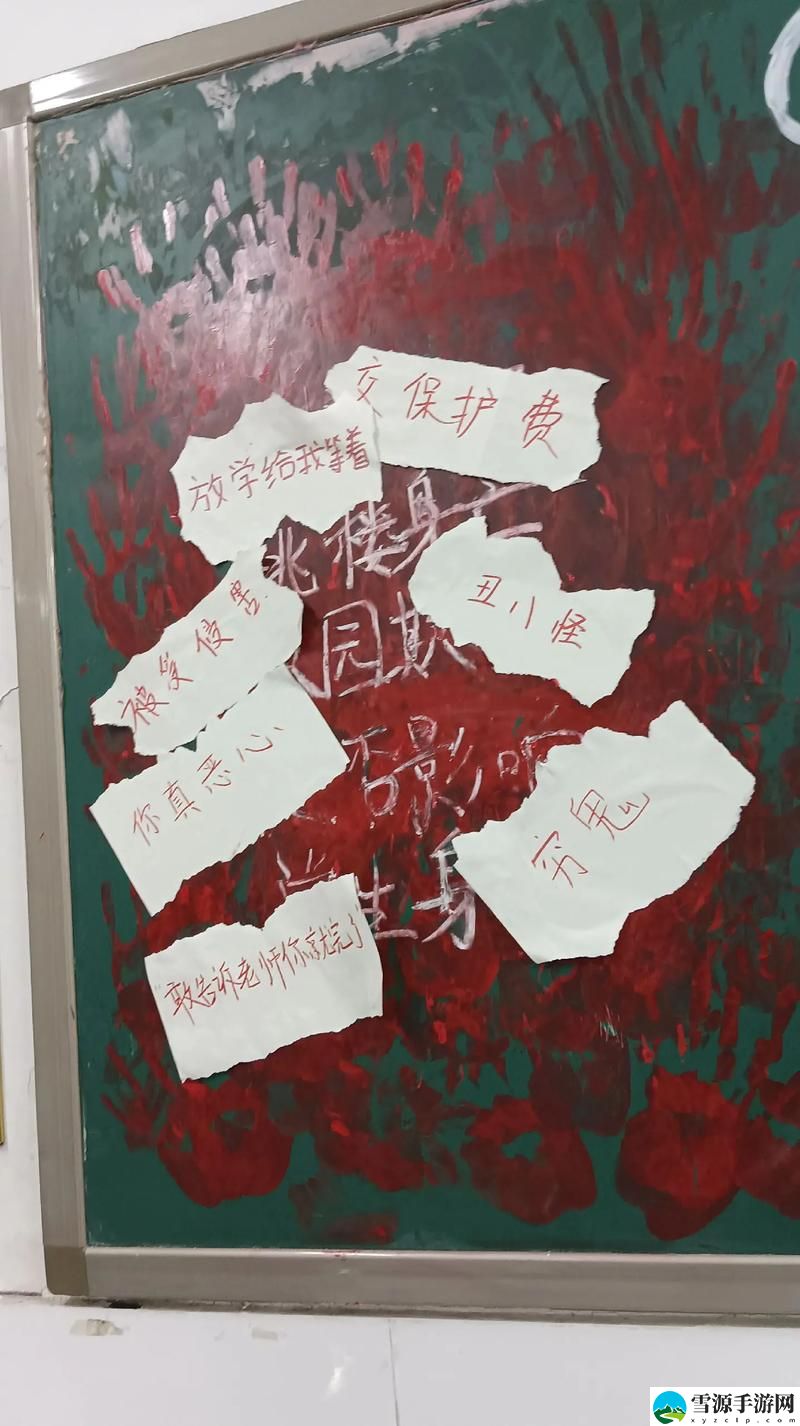 交保护费
放学给我等着
跳楼身亡
丑八怪
被受侵害
园欺
你真恶心
否影响
穷鬼
生身
敢告诉老师你就完了
雪源手游网
xyzclp.com